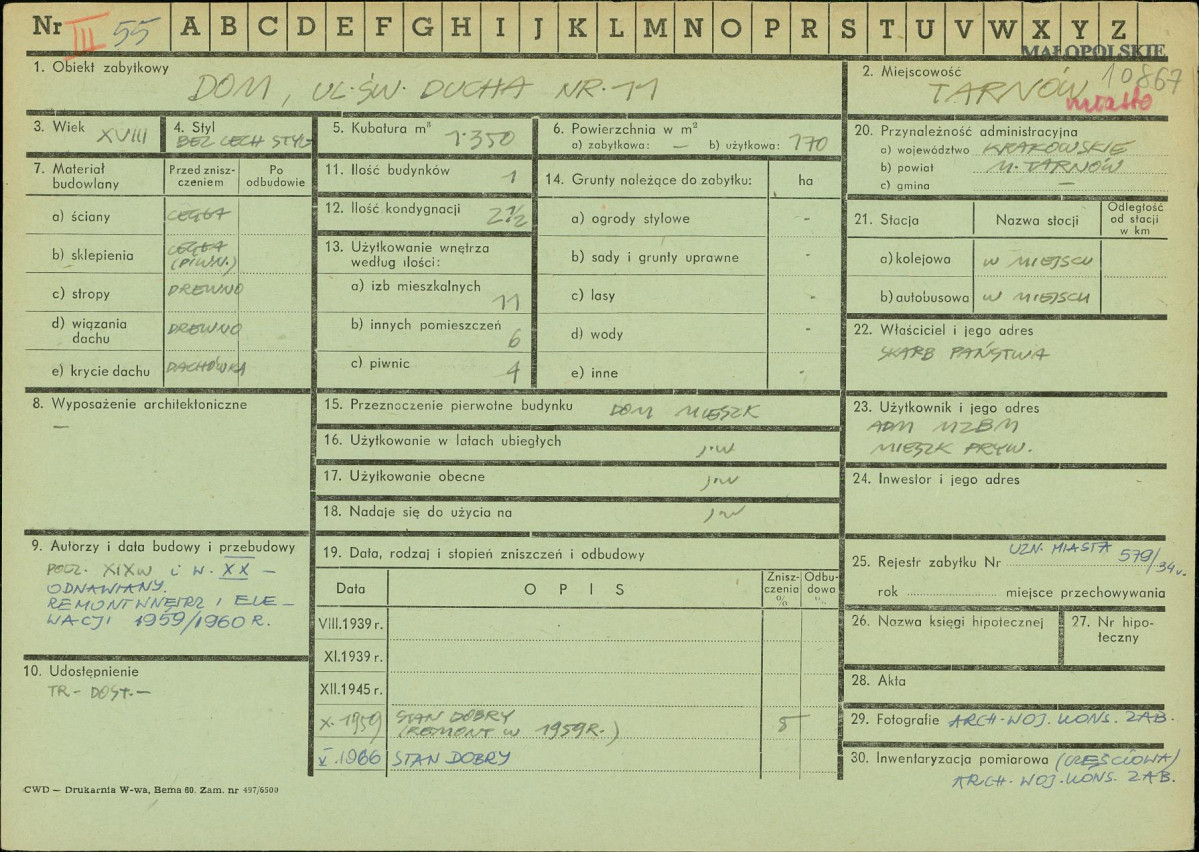 Nr III 55 A B C D E F G H I J K L M N O P R S T U V W X Y Z
MAŁOPOLSKIE
1. Obiekt zabytkowy
DOM, UL. ŚW. DUCHA NR. 11
2. Miejscowość
TARNÓW 10867
miasto
3. Wiek XVIII
4. Styl
BEZ CECH STYL
5. Kubatura m³ 1350
6. Powierzchnia w m²
a) zabytkowa: — b) użytkowa: 170
7. Materiał budowlany
Przed zniszczeniem
Po odbudowie
a) ściany CEGŁA
b) sklepienia CEGŁA
(PIWN.)
c) stropy DREWNO
d) wiązania dachu DREWNO
e) krycie dachu DACHÓWKA
8. Wyposażenie architektoniczne
—
9. Autorzy i data budowy i przebudowy
POCZ. XIX W i W. XX —
ODNAWIANY.
REMONT WNĘTRZ I ELE-
WACJI 1959/1960 R.
10. Udostępnienie
TR.- DOST.—
11. Ilość budynków 1
12. Ilość kondygnacji 2 1/2
13. Użytkowanie wnętrza
według ilości:
a) izb mieszkalnych
11
b) innych pomieszczeń
6
c) piwnic 4
14. Grunty należące do zabytku: ha
a) ogrody stylowe -
b) sady i grunty uprawne -
c) lasy -
d) wody -
e) inne -
15. Przeznoczenie pierwotne budynku DOM MIESZK
16. Użytkowanie w latach ubiegłych j.w
17. Użytkowanie obecne j.w
18. Nadaje się do użycia na j.w
19. Data, rodzaj i stopień zniszczeń i odbudowy
Data OPIS Zniszczenia % Odbudowa %
VIII.1939 r.
XI.1939 r.
XII.1945 r.
X. 1959 STAN DOBRY
(REMONT W 1959R.) 5
V.1966 STAN DOBRY
20. Przynależność administracyjna
a) województwo KRAKOWSKIE
b) powiat M. TARNÓW
c) gmina —
21. Stacja Nazwa stacji Odległość
od stacji
w km
a) kolejowa W MIEJSCU
b) autobusowa W MIEJSCU
22. Właściciel i jego adres
SKARB PAŃSTWA
23. Użytkownik i jego adres
ADM MZBM
MIESZK PRYW.
24. Inwestor i jego adres
25. Rejestr zabytku Nr UZN. MIASTA 579/34 v.
rok miejsce przechowywania
26. Nazwa księgi hipotecznej
27. Nr hipo-
teczny
28. Akta
29. Fotografie ARCH. WOJ. KONS. ZAB.
30. Inwentaryzacja pomiarowa (CZĘŚCIOWA)
ARCH. WOJ. KONS. ZAB.
CWD — Drukarnia W-wa, Bema 60. Zam. nr 497/6500